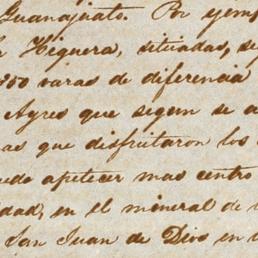 Guanajuato. Por ejemp
Higuera, situadas, se
850 varas de diferencia
Agres que segun se a
as que disfrutaron los
apetecer mas centro
idad, en el mineral de
San Juan de Dios en